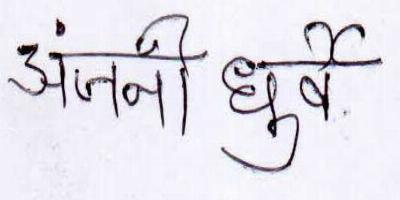 अंजनी धुर्वे